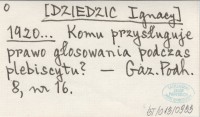 [DZIEDZIC Ignacy]
1920... Komu przysługuje
prawo głosowania podczas
plebiscytu? — Gaz. Podh.
8, nr 16.